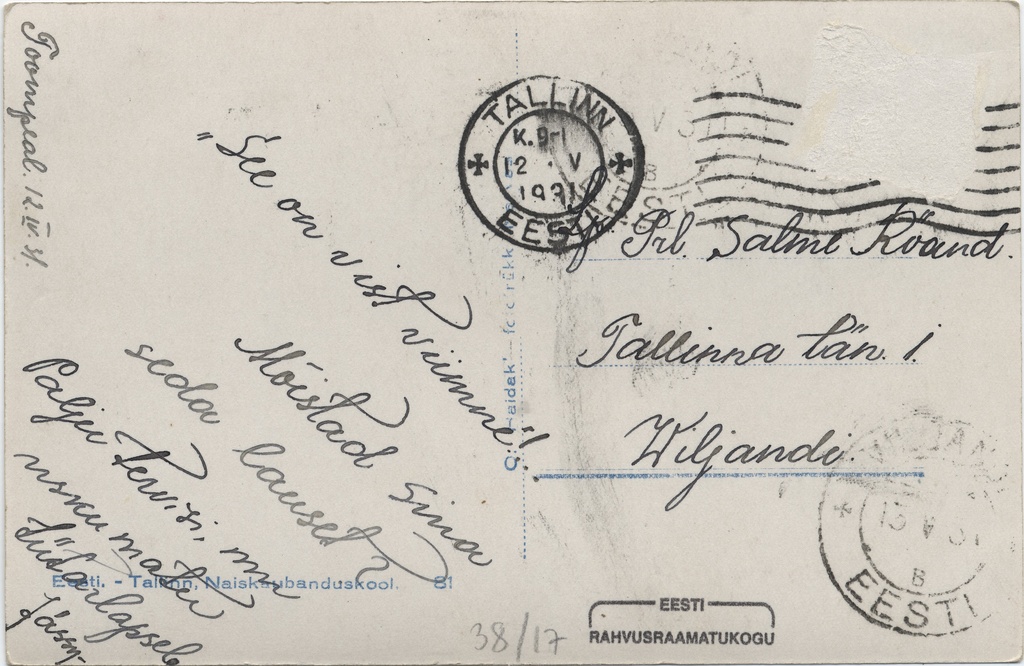 Toompeal. 12 IV 31.
„See on vist viimne“!
Mõistad sina
seda lauset?
Palju tervisi, mu
uskumatu
tütarlapsele
Eesti. - Tallinn, Naiskaubanduskool. 81
TALLINN
K. 9-1
12 . V
1931
EESTI
Prl. Salme Kõand.
Tallinna tän. 1.
Wiljandi.
VILJANDI
13 V 31
B
EESTI
38/17
EESTI
RAHVUSRAAMATUKOGU